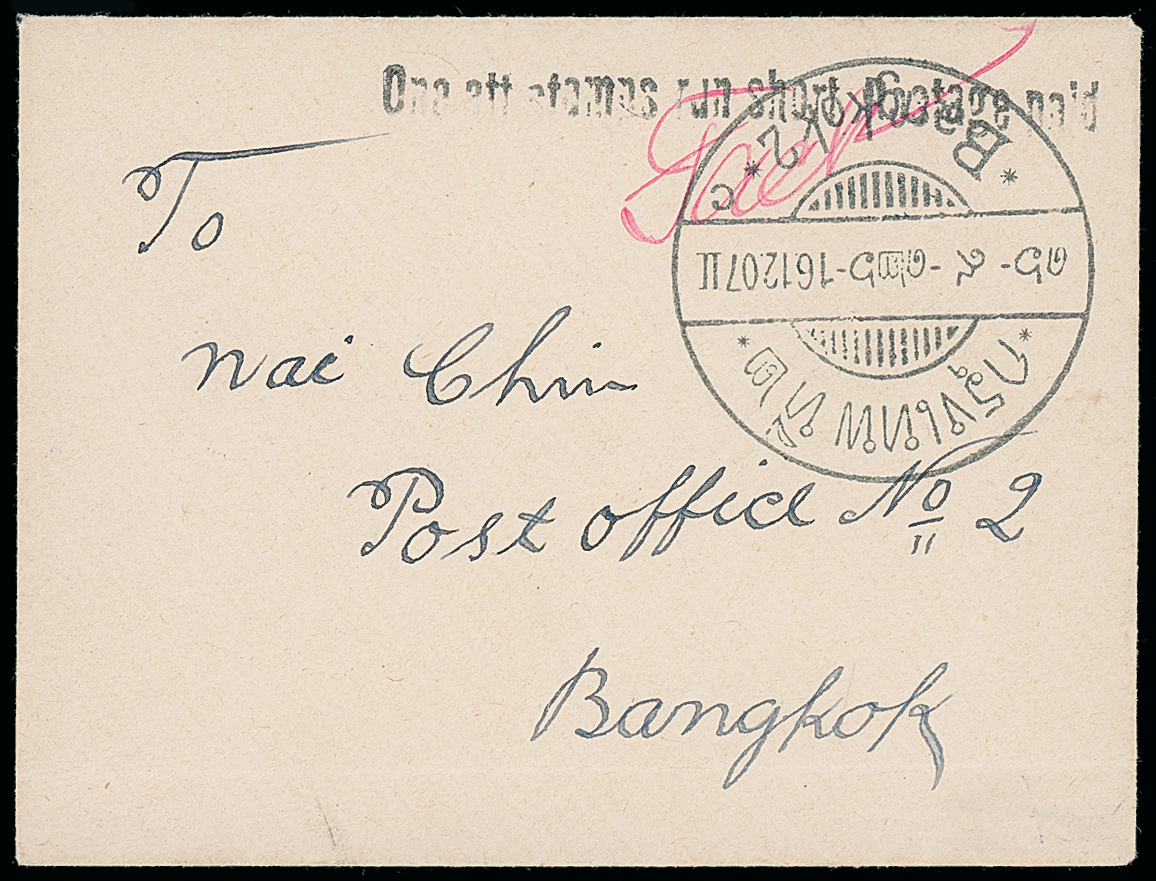 One att stamps run short Postage paid
To
Nai Chin
Post office No 2
Bangkok
* กรุงเทพ ที่ ๒ *
๑๖- ๙ -๑๒๖-16.12.07 11